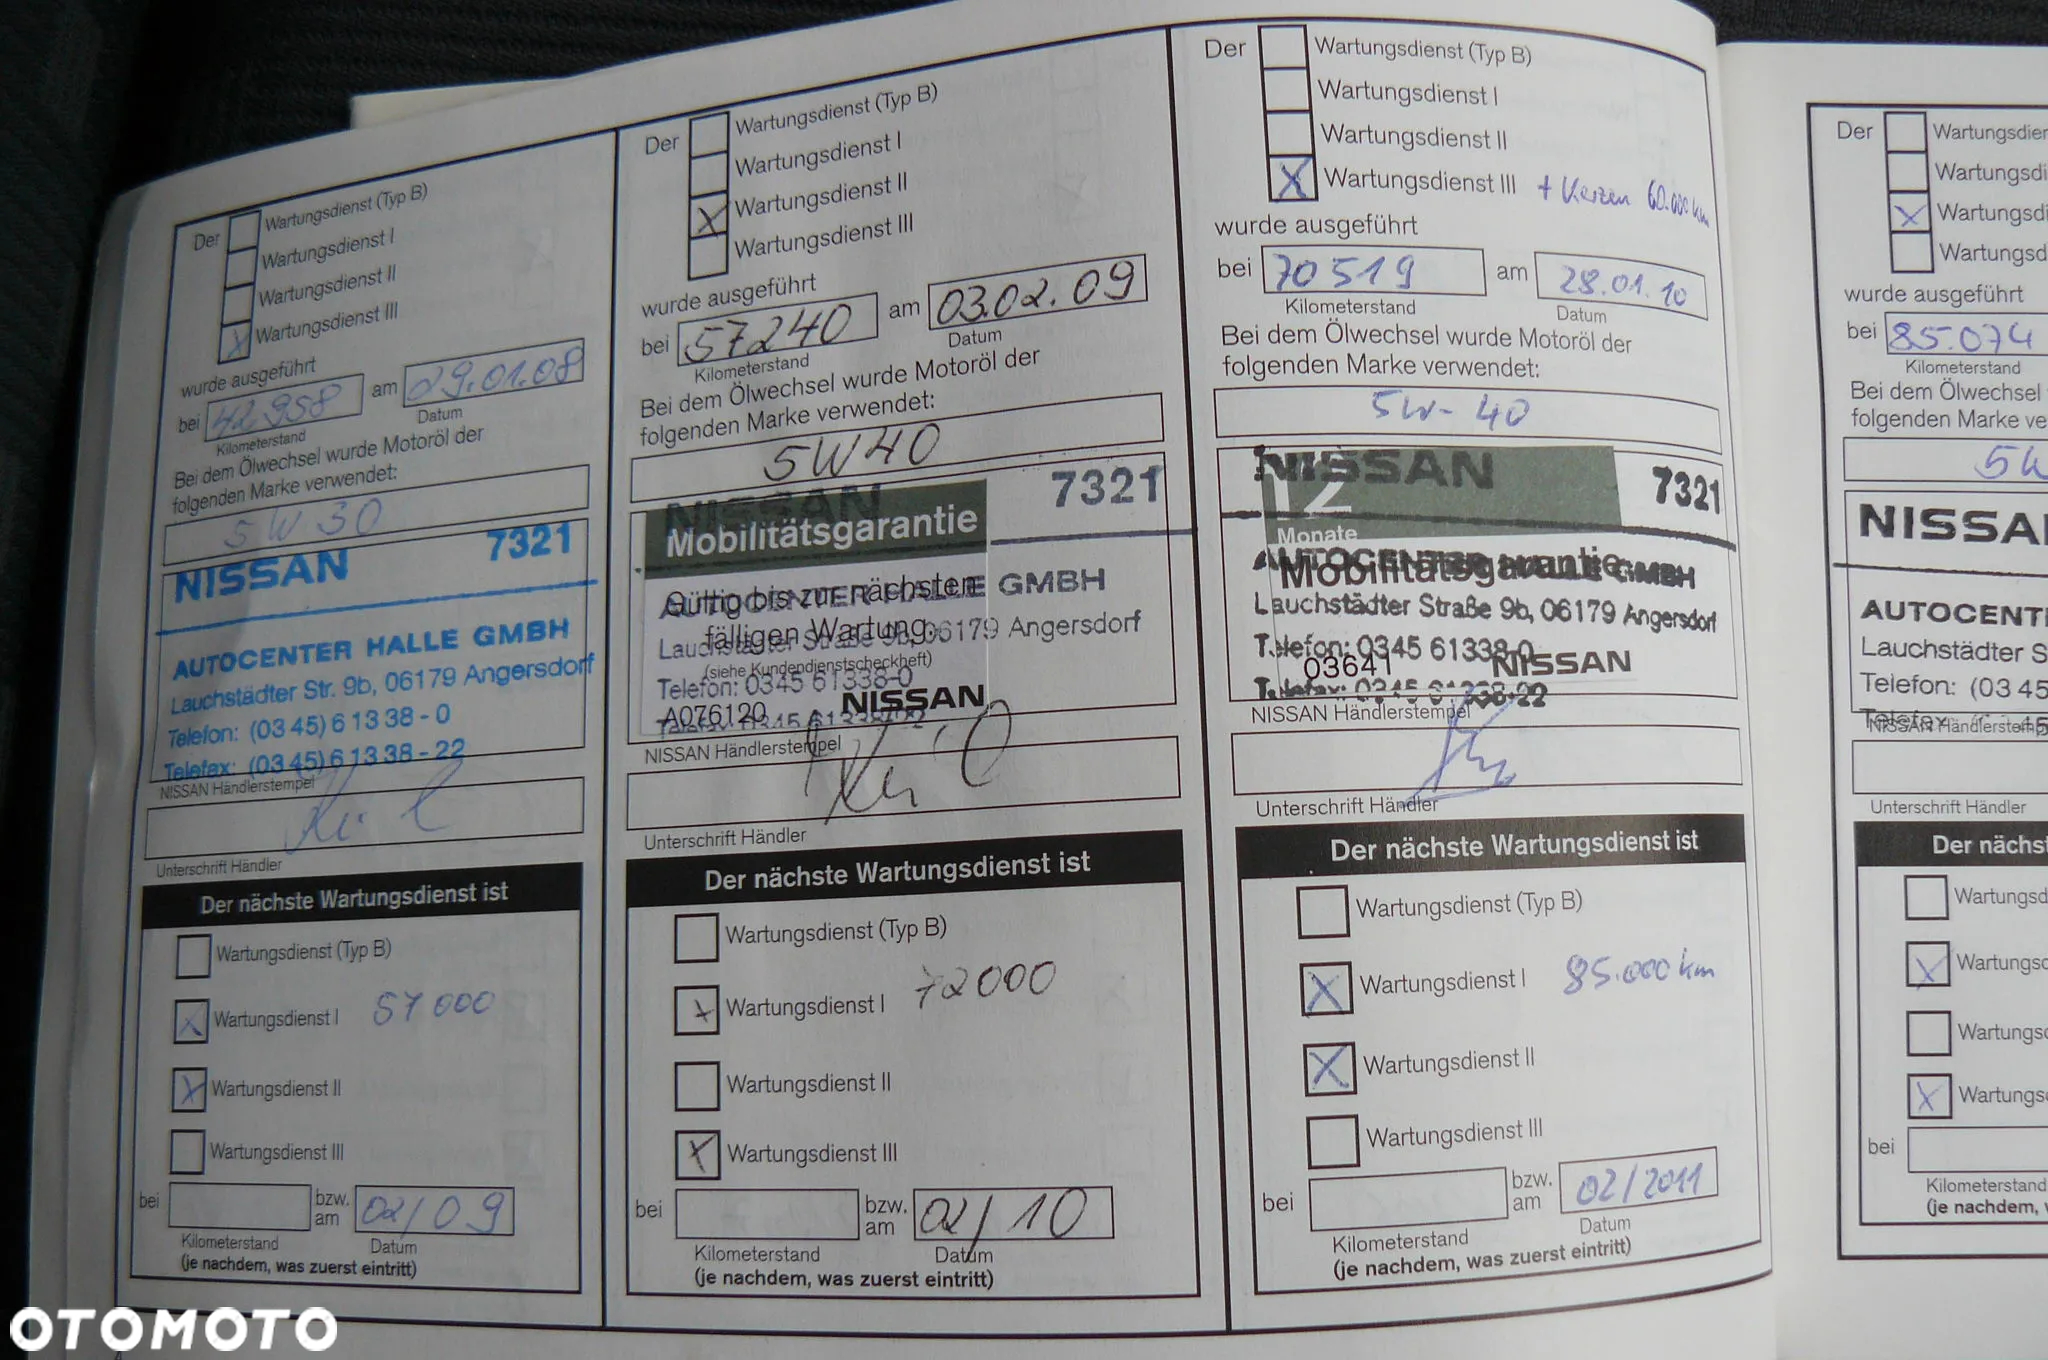 Der
Wartungsdienst (Typ B)
Wartungsdienst I
Wartungsdienst II
X Wartungsdienst III
wurde ausgeführt
bei 42958 am 29.01.08
Kilometerstand Datum
Bei dem Ölwechsel wurde Motoröl der
folgenden Marke verwendet:
5W30
NISSAN 7321
AUTOCENTER HALLE GMBH
Lauchstädter Str. 9b, 06179 Angersdorf
Telefon: (03 45) 6 13 38 - 0
Telefax: (03 45) 6 13 38 - 22
NISSAN Händlerstempel
Unterschrift Händler
Der nächste Wartungsdienst ist
Wartungsdienst (Typ B)
X Wartungsdienst I 57 000
X Wartungsdienst II
Wartungsdienst III
bei bzw. am 02/09
Kilometerstand Datum
(je nachdem, was zuerst eintritt)
Der
Wartungsdienst (Typ B)
Wartungsdienst I
X Wartungsdienst II
Wartungsdienst III
wurde ausgeführt
bei 57240 am 03.02.09
Kilometerstand Datum
Bei dem Ölwechsel wurde Motoröl der
folgenden Marke verwendet:
5W40
NISSAN 7321
Mobilitätsgarantie
Gültig bis zur nächsten
AUTOCENTER HALLE GMBH
fälligen Wartung
Lauchstädter Straße 9b, 06179 Angersdorf
(siehe Kundendienstscheckheft)
Telefon: 0345 61338-0
NISSAN
A076120
Telefax: 0345 61338-22
NISSAN Händlerstempel
Unterschrift Händler
Der nächste Wartungsdienst ist
Wartungsdienst (Typ B)
X Wartungsdienst I 72000
Wartungsdienst II
X Wartungsdienst III
bei bzw. am 02/10
Kilometerstand Datum
(je nachdem, was zuerst eintritt)
Der
Wartungsdienst (Typ B)
Wartungsdienst I
Wartungsdienst II
X Wartungsdienst III + Kerzen 60.000 km
wurde ausgeführt
bei 70519 am 28.01.10
Kilometerstand Datum
Bei dem Ölwechsel wurde Motoröl der
folgenden Marke verwendet:
5W-40
NISSAN 7321
12
Monate
AUTOCENTER HALLE GMBH
Mobilitätsgarantie
Lauchstädter Straße 9b, 06179 Angersdorf
Telefon: 0345 61338-0
03641 NISSAN
Telefax: 0345 61338-22
NISSAN Händlerstempel
Unterschrift Händler
Der nächste Wartungsdienst ist
Wartungsdienst (Typ B)
X Wartungsdienst I 85.000 km
X Wartungsdienst II
Wartungsdienst III
bei bzw. am 02/2011
Kilometerstand Datum
(je nachdem, was zuerst eintritt)
Der
Wartungsdien
Wartungsdi
X Wartungsdi
Wartungsd
wurde ausgeführt
bei 85.074
Kilometerstand
Bei dem Ölwechsel
folgenden Marke ve
5W
NISSA
AUTOCENT
Lauchstädter S
Telefon: (03 45
Telefax
NISSAN Händlerstemp
Unterschrift Händler
Der nächst
Wartungsd
X Wartungsd
Wartungsd
X Wartungs
bei
Kilometerstand
(je nachdem, w
OTOMOTO